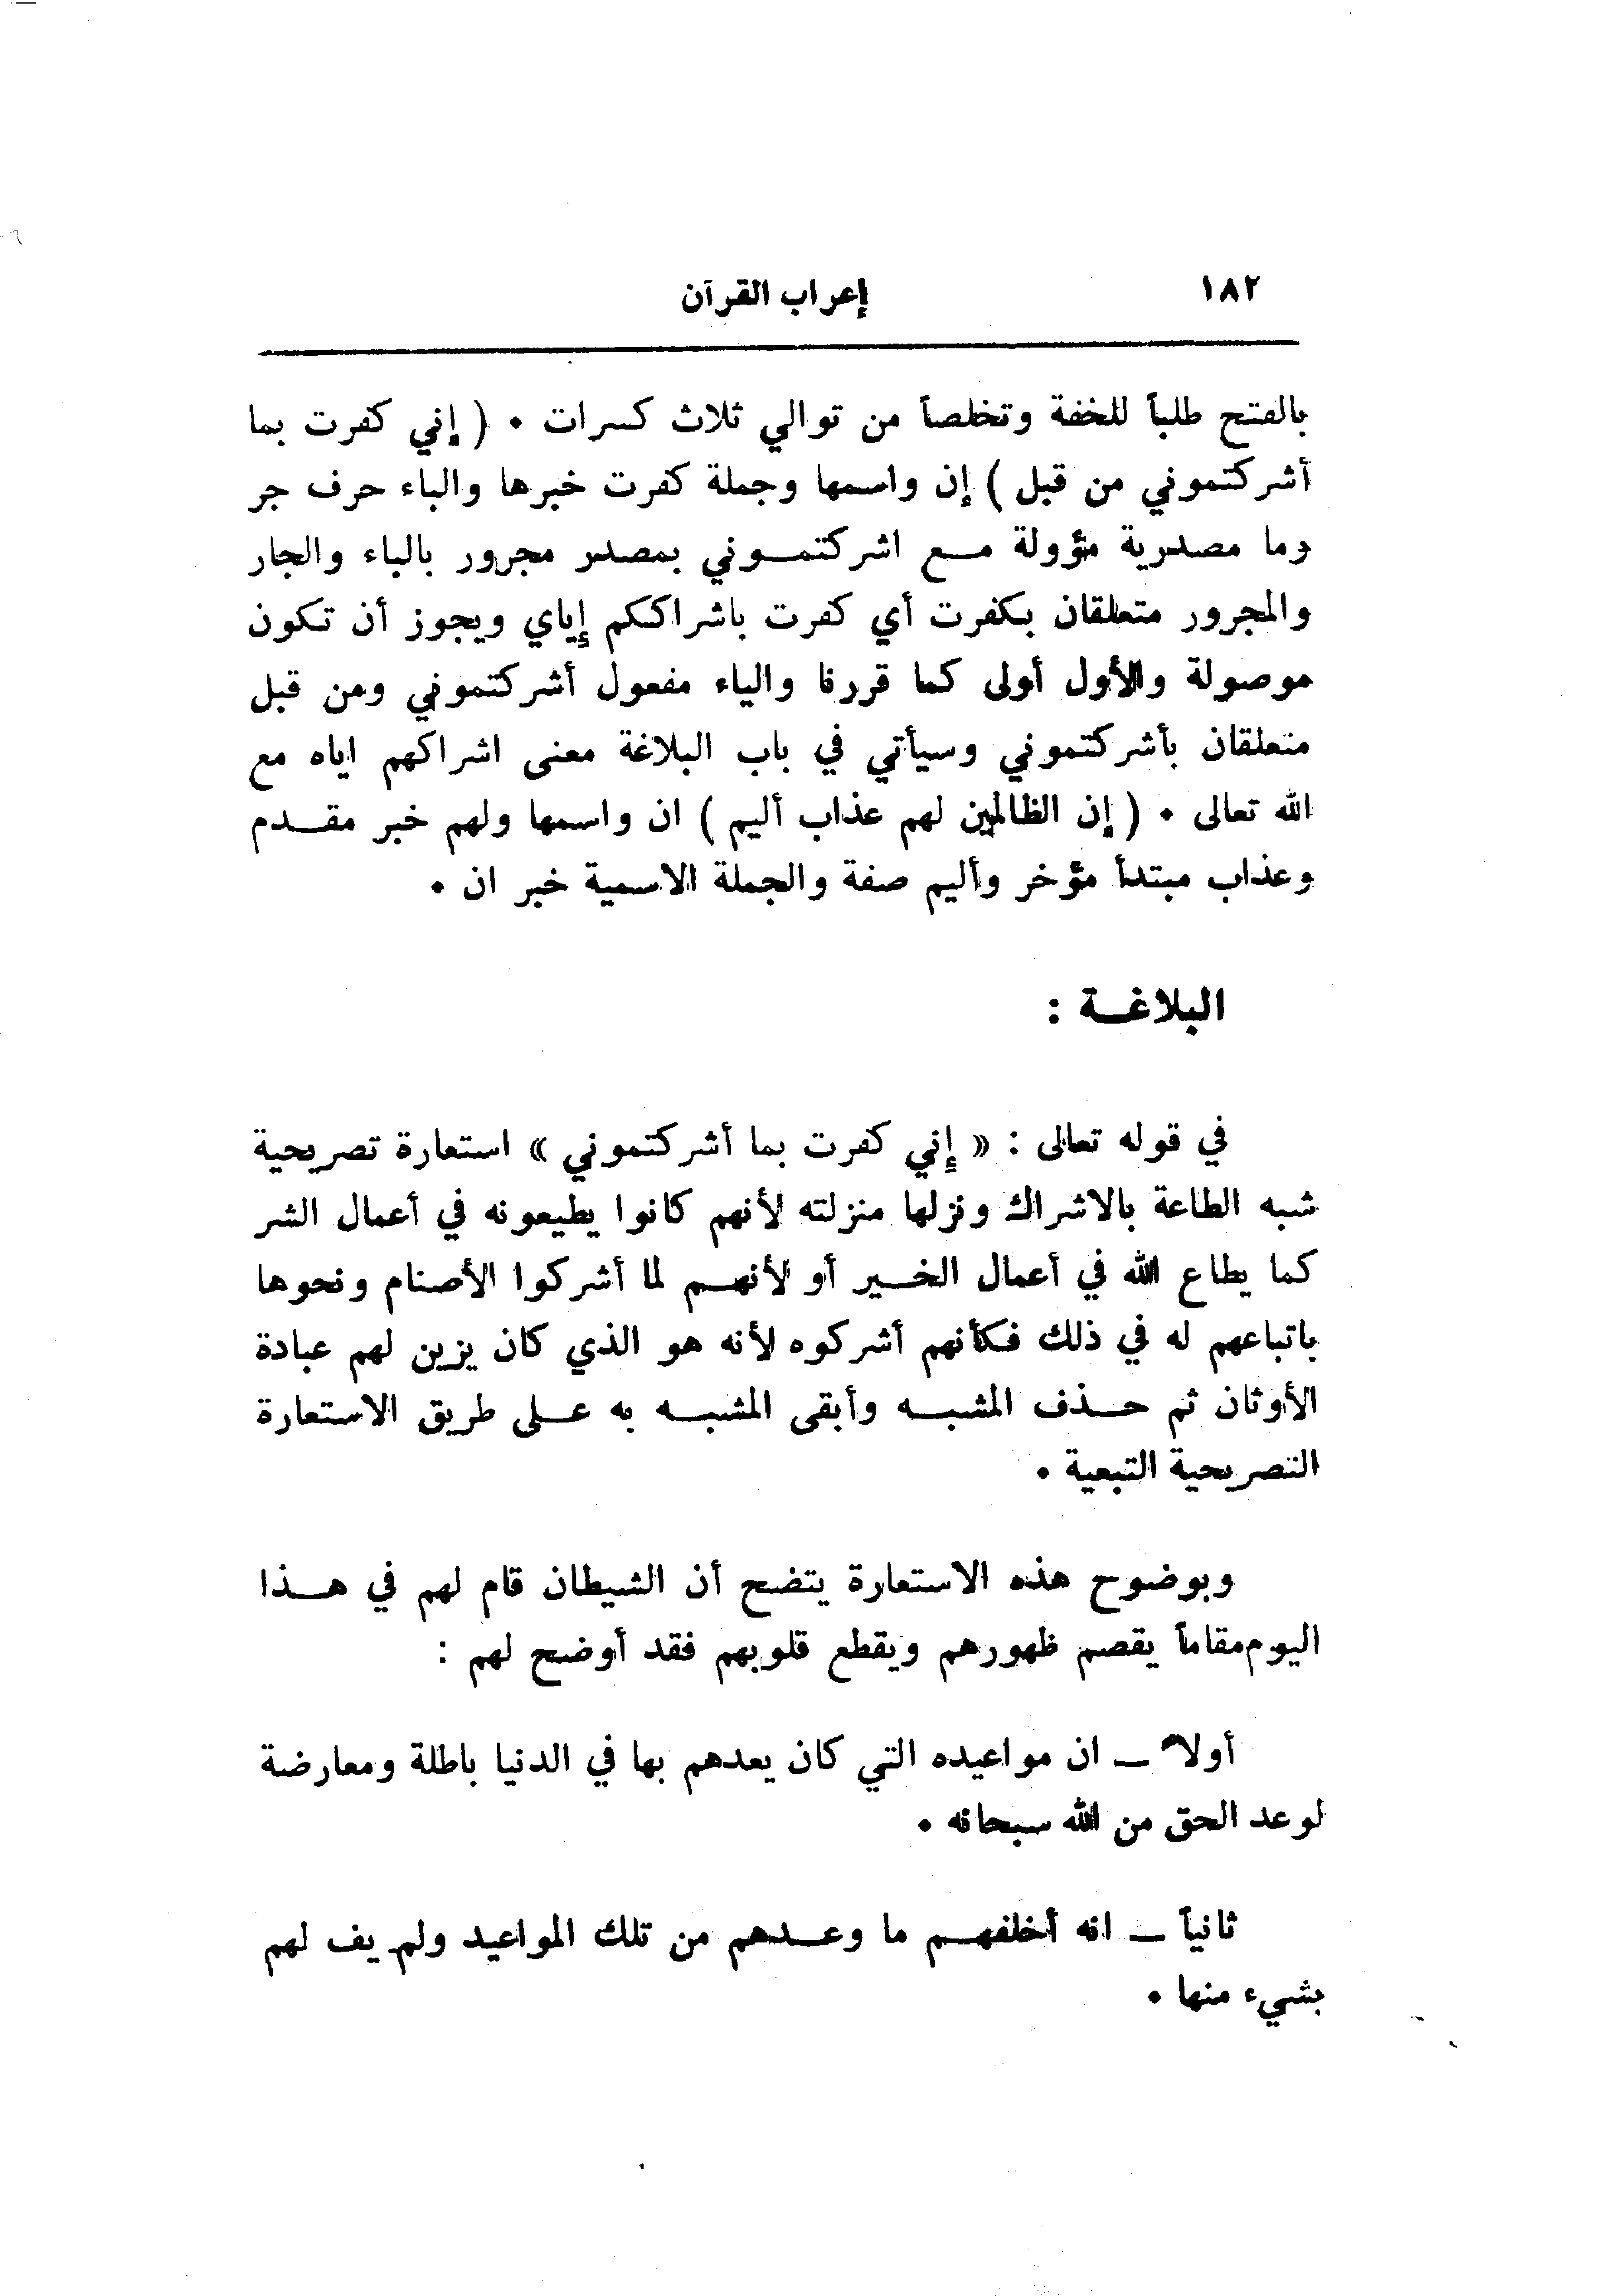 ١٨٢ إعراب القرآن
بالفتح طلباً للخفة وتخلصاً من توالي ثلاث كسرات • ( إني كفرت بما
أشركتموني من قبل ) إن واسمها وجملة كفرت خبرها والباء حرف جر
وما مصدرية مؤولة مع اشركتموني بمصدر مجرور بالباء والجار
والمجرور متعلقان بكفرت أي كفرت باشراككم إياي ويجوز أن تكون
موصولة والأول أولى كما قررنا والياء مفعول أشركتموني ومن قبل
متعلقان بأشركتموني وسيأتي في باب البلاغة معنى اشراكهم اياه مع
الله تعالى • ( إن الظالمين لهم عذاب أليم ) ان واسمها ولهم خبر مقدم
وعذاب مبتدأ مؤخر وأليم صفة والجملة الاسمية خبر ان •
البلاغة :
في قوله تعالى : « إني كفرت بما أشركتموني » استعارة تصريحية
شبه الطاعة بالاشراك ونزلها منزلته لأنهم كانوا يطيعونه في أعمال الشر
كما يطاع الله في أعمال الخير أو لأنهم لما أشركوا الأصنام ونحوها
باتباعهم له في ذلك فكأنهم أشركوه لأنه هو الذي كان يزين لهم عبادة
الأوثان ثم حذف المشبه وأبقى المشبه به على طريق الاستعارة
التصريحية التبعية •
وبوضوح هذه الاستعارة يتضح أن الشيطان قام لهم في هذا
اليوم مقاماً يقصم ظهورهم ويقطع قلوبهم فقد أوضح لهم :
أولاً — ان مواعيده التي كان يعدهم بها في الدنيا باطلة ومعارضة
لوعد الحق من الله سبحانه •
ثانياً — انه أخلفهم ما وعدهم من تلك المواعيد ولم يف لهم
بشيء منها •